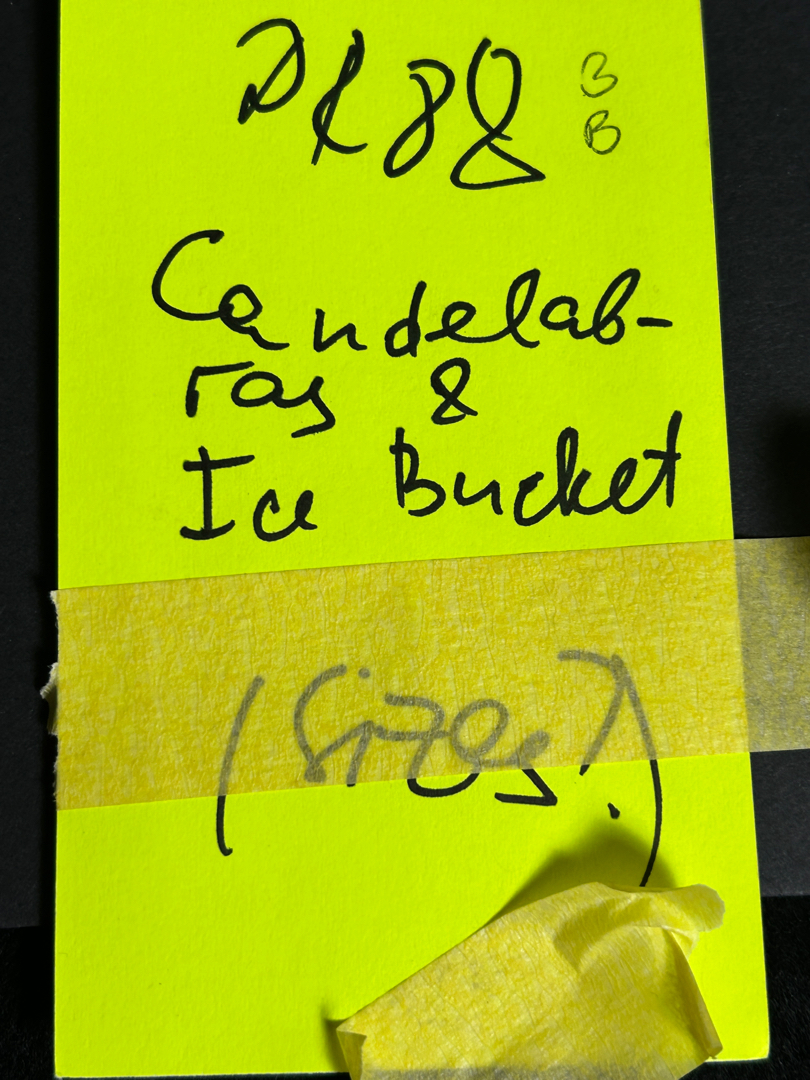 PK 88 B
B
Candelab-
ras &
Ice Bucket
(Sizes?)